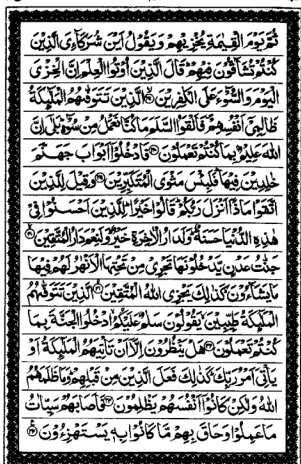 ثُمَّ يَوْمَ الْقِيٰمَةِ يُخْزِيْهِمْ وَيَقُوْلُ اَيْنَ شُرَكَآءِيَ الَّذِيْنَ
كُنْتُمْ تُشَآقُّوْنَ فِيْهِمْ قَالَ الَّذِيْنَ اُوْتُوا الْعِلْمَ اِنَّ الْخِزْيَ
الْيَوْمَ وَالسُّوْٓءَ عَلَى الْكٰفِرِيْنَ ۲۷ الَّذِيْنَ تَتَوَفّٰىهُمُ الْمَلٰٓئِكَةُ
ظَالِمِيْٓ اَنْفُسِهِمْ فَاَلْقَوُا السَّلَمَ مَا كُنَّا نَعْمَلُ مِنْ سُوْٓءٍ بَلٰٓى اِنَّ
اللّٰهَ عَلِيْمٌۢ بِمَا كُنْتُمْ تَعْمَلُوْنَ ۲۸ فَادْخُلُوْٓا اَبْوَابَ جَهَنَّمَ
خٰلِدِيْنَ فِيْهَا فَلَبِئْسَ مَثْوَى الْمُتَكَبِّرِيْنَ ۲۹ وَقِيْلَ لِلَّذِيْنَ
اتَّقَوْا مَاذَآ اَنْزَلَ رَبُّكُمْ قَالُوْا خَيْرًا لِلَّذِيْنَ اَحْسَنُوْا فِيْ
هٰذِهِ الدُّنْيَا حَسَنَةٌ وَلَدَارُ الْاٰخِرَةِ خَيْرٌ وَلَنِعْمَ دَارُ الْمُتَّقِيْنَ ۳۰
جَنّٰتُ عَدْنٍ يَّدْخُلُوْنَهَا تَجْرِيْ مِنْ تَحْتِهَا الْاَنْهٰرُ لَهُمْ فِيْهَا
مَا يَشَآءُوْنَ كَذٰلِكَ يَجْزِي اللّٰهُ الْمُتَّقِيْنَ ۳۱ الَّذِيْنَ تَتَوَفّٰىهُمُ
الْمَلٰٓئِكَةُ طَيِّبِيْنَ يَقُوْلُوْنَ سَلٰمٌ عَلَيْكُمُ ادْخُلُوا الْجَنَّةَ بِمَا
كُنْتُمْ تَعْمَلُوْنَ ۳۲ هَلْ يَنْظُرُوْنَ اِلَّآ اَنْ تَاْتِيَهُمُ الْمَلٰٓئِكَةُ اَوْ
يَاْتِيَ اَمْرُ رَبِّكَ كَذٰلِكَ فَعَلَ الَّذِيْنَ مِنْ قَبْلِهِمْ وَمَا ظَلَمَهُمُ
اللّٰهُ وَلٰكِنْ كَانُوْٓا اَنْفُسَهُمْ يَظْلِمُوْنَ ۳۳ فَاَصَابَهُمْ سَيِّاٰتُ
مَا عَمِلُوْا وَحَاقَ بِهِمْ مَّا كَانُوْا بِهٖ يَسْتَهْزِءُوْنَ ۳۴